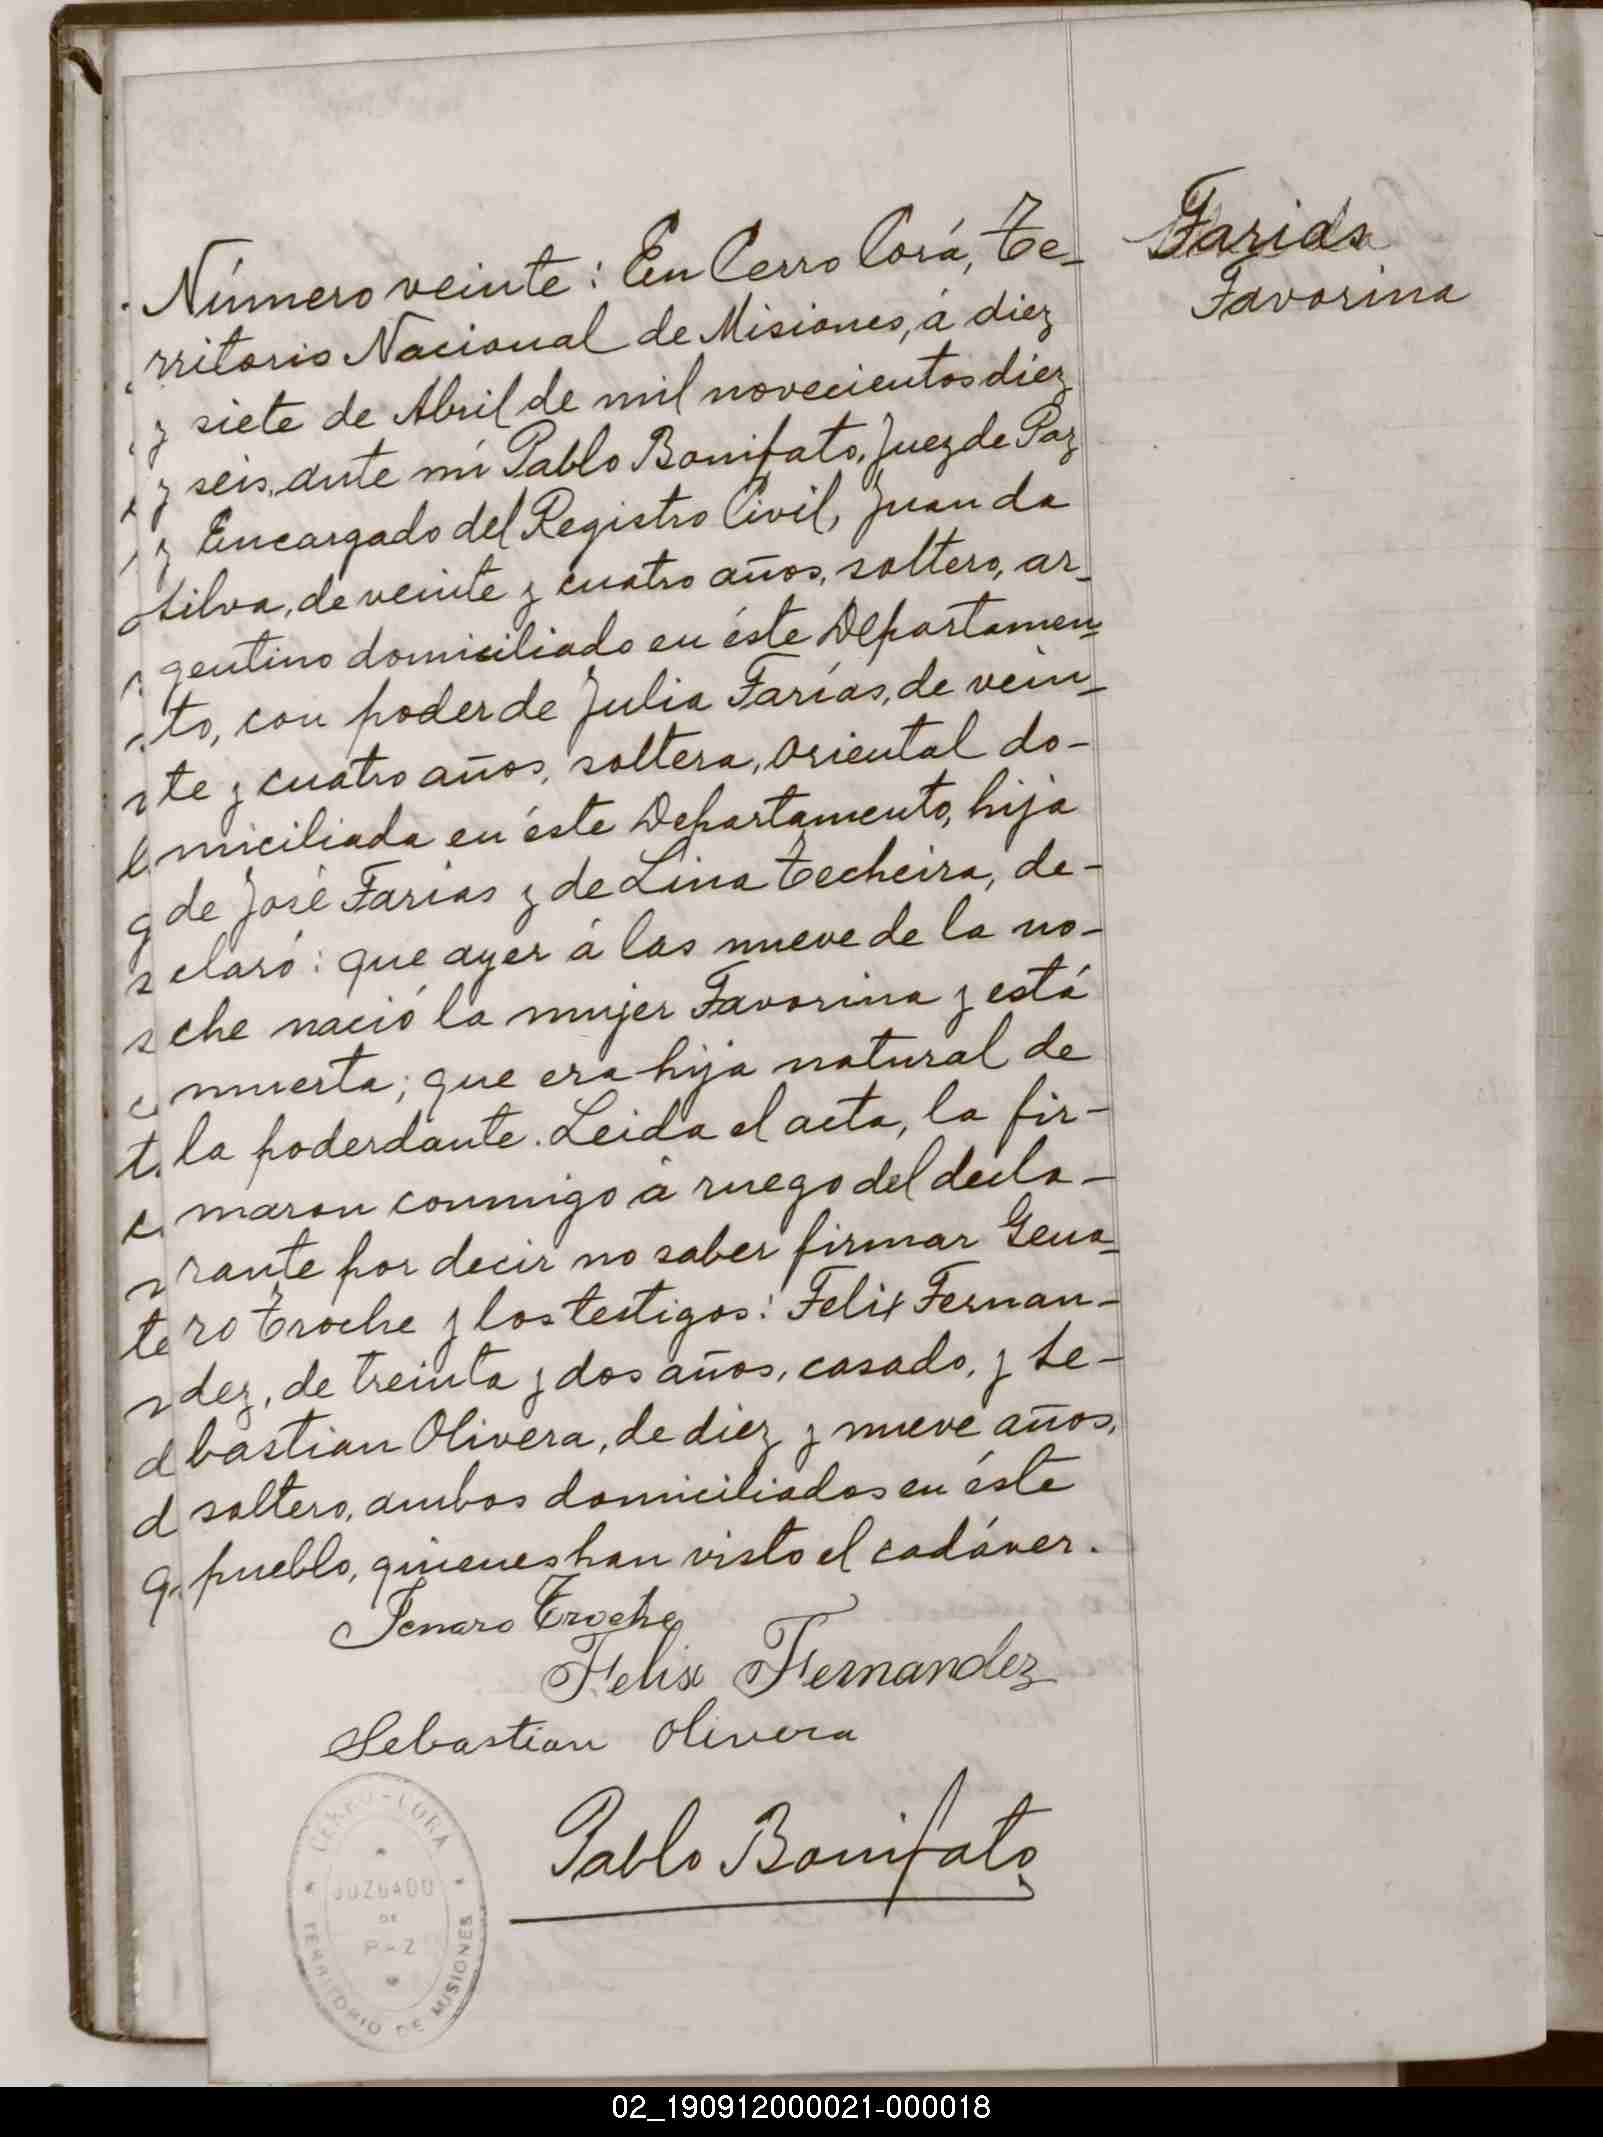 Farias
Favorina
Número veinte: En Cerro Corá, Te-
rritorio Nacional de Misiones, á diez
y siete de Abril de mil novecientos diez
y seis, ante mí Pablo Bonifato, Juez de Paz
y Encargado del Registro Civil, Juan da
Silva, de veinte y cuatro años, soltero, ar-
gentino domiciliado en éste Departamen-
to, con poder de Julia Farías, de vein-
te y cuatro años, soltera, oriental do-
miciliada en éste Departamento, hija
de José Farías y de Lina Techeira, de-
claró: que ayer á las nueve de la no-
che nació la mujer Favorina y está
muerta; que era hija natural de
la poderdante. Leida el acta, la fir-
maron conmigo á ruego del decla-
rante por decir no saber firmar Gena-
ro Troche y los testigos: Felix Fernan-
dez, de treinta y dos años, casado, y Se-
bastian Olivera, de diez y nueve años,
soltero, ambos domiciliados en éste
pueblo, quienes han visto el cadáver.
Jenaro Troche
Felix Fernandez
Sebastian Olivera
Pablo Bonifato
CERRO-CORA
JUZGADO
DE
P-Z
TERRITORIO DE MISIONES
02_190912000021-000018